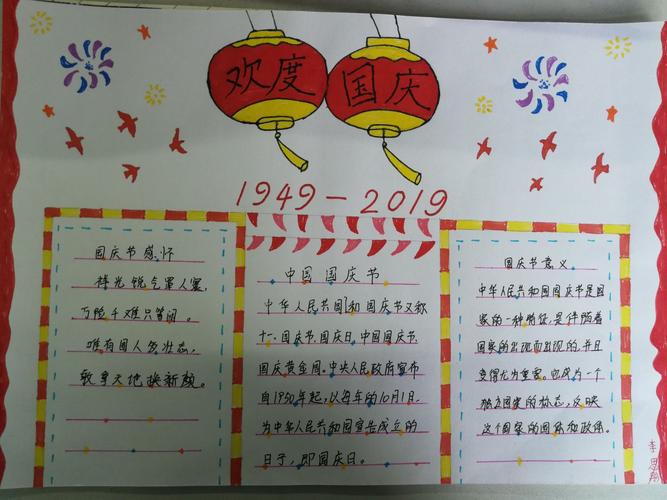 欢度国庆
1949-2019
国庆节感怀
锐气罩人寰,
万险千难只等闲。
唯有国人多壮志,
敢享天地换新颜。
中国国庆节
中华人民共和国国庆节又称
十一、国庆节、国庆日、中国国庆节、
国庆黄金周。中央人民政府宣布
自1950年起,以每年的10月1日,
为中华人民共和国宣告成立的
日子,即国庆日。
国庆节意义
中华人民共和国国庆节是国
家的一种特征,是伴随着
国家的出现而出现的,并且
变得尤为重要。它成为一个
独立国家的标志,反映
这个国家的国体和政体。
李思翔